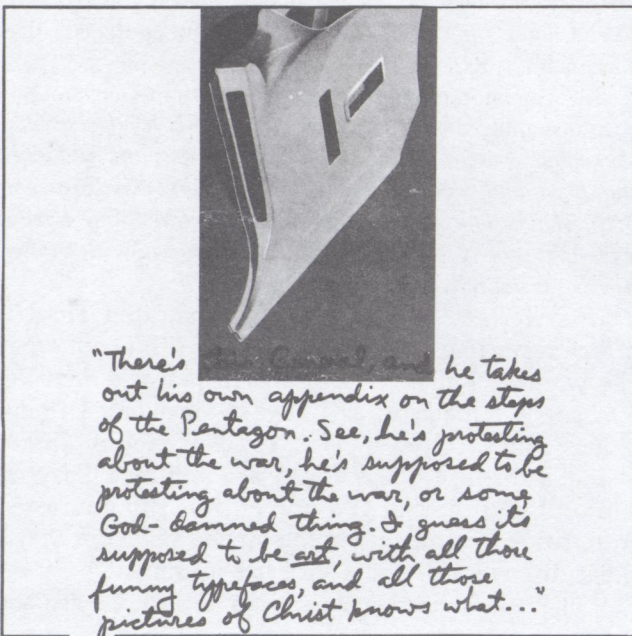 "There's                     and he takes
out his own appendix on the steps
of the Pentagon. See, he's protesting
about the war, he's supposed to be
protesting about the war, or some
God-damned thing. I guess its
supposed to be art, with all those
funny typefaces, and all those
pictures of Christ knows what..."